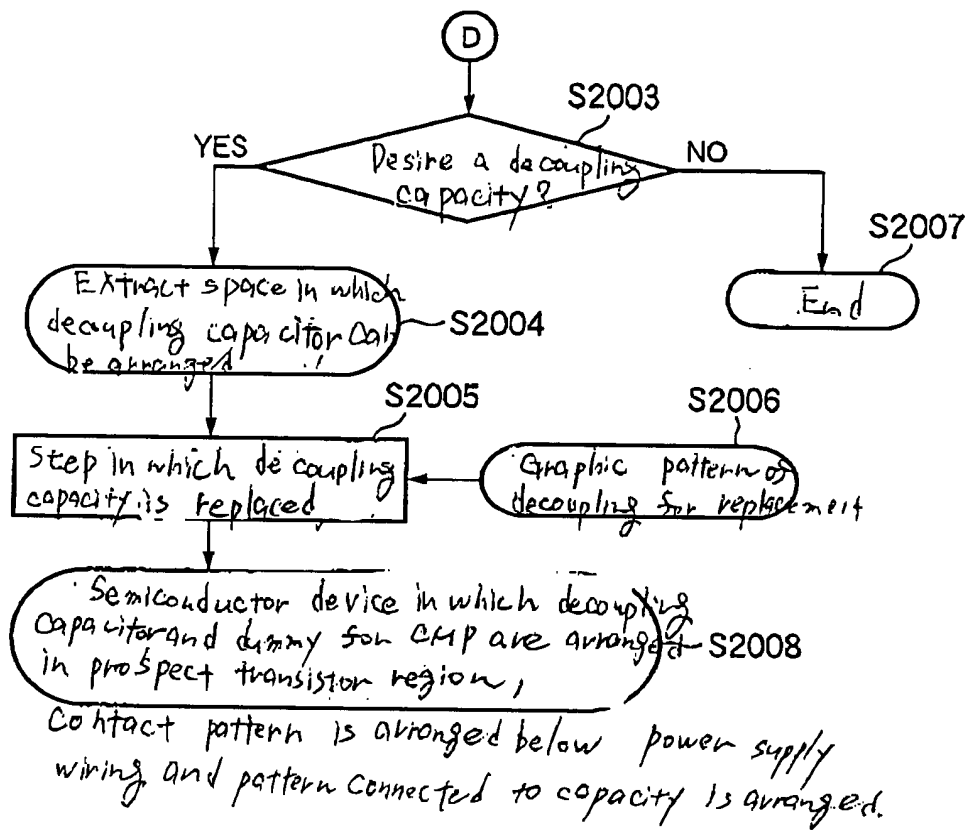 D
S2003
YES
Desire a decoupling
NO
capacity?
S2007
End
Extract space in which
decoupling capacitor can
be arranged
S2004
S2005
S2006
Step in which decoupling
capacity is replaced
Graphic pattern of
decoupling for replacement
Semiconductor device in which decoupling
capacitor and dummy for CMP are arranged
in prospect transistor region,
S2008
Contact pattern is arranged below power supply
wiring and pattern connected to capacity is arranged.